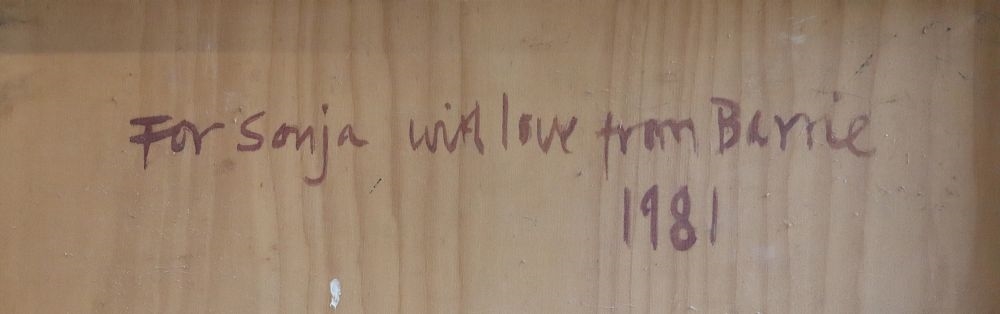 For Sonja with love from Barrie
1981